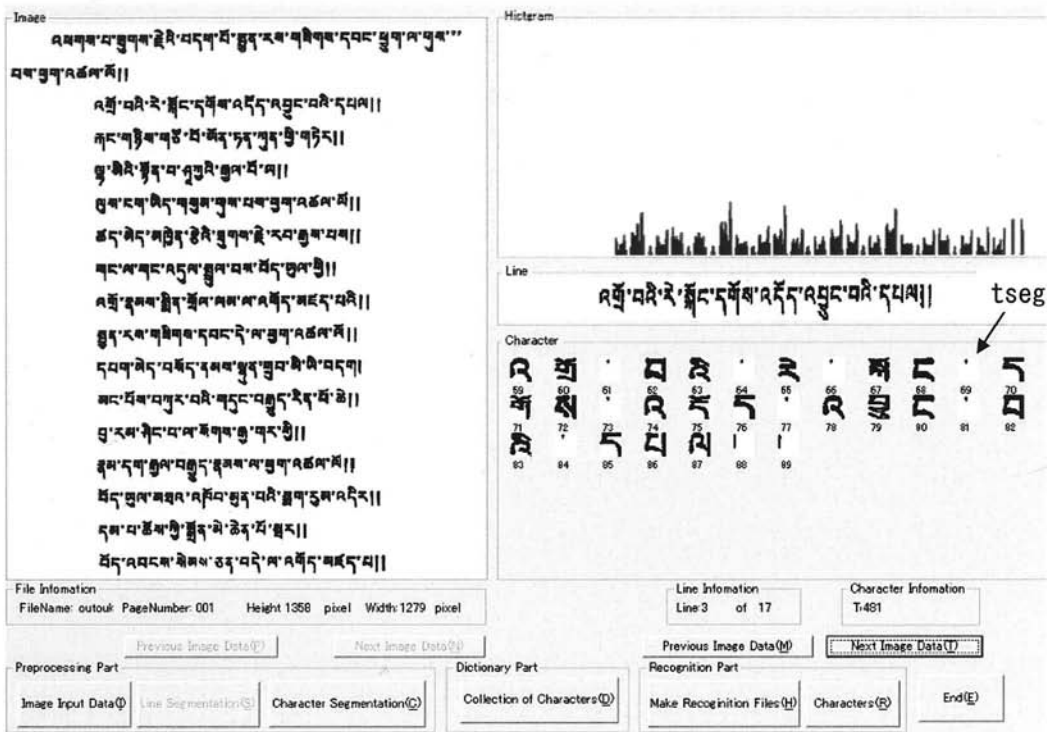 Image
འཕགས་པ་ཐུགས་རྗེའི་བདག་པོ་སྤྱན་རས་གཟིགས་དབང་ཕྱུག་ལ་གུས་"'
པས་ཕྱག་འཚལ་ལོ།།
འགྲོ་བའི་རེ་སྐོང་དགོས་འདོད་འབྱུང་བའི་དཔལ།།
རྐང་གཉིས་གཙོ་བོ་ཡོན་ཏན་ཀུན་གྱི་གཏེར།།
ལྷ་མིའི་སྟོན་པ་ཤཱཀྱའི་རྒྱལ་པོ་ལ།།
ལུས་ངག་ཡིད་གསུམ་གུས་པས་ཕྱག་འཚལ་ལོ།།
ཚད་མེད་མཁྱེན་རྩེའི་ཐུགས་རྗེ་རབ་རྒྱས་པས།།
གང་ལ་གང་འདུལ་སྤྲུལ་པས་བོད་ཡུལ་གྱི།།
འགྲོ་རྣམས་སྨིན་གྲོལ་ལམ་ལ་འགོད་མཛད་པའི།།
སྤྱན་རས་གཟིགས་དབང་དེ་ལ་ཕྱག་འཚལ་ལོ།།
དཔག་མེད་བསོད་ནམས་ལྷུན་གྲུབ་མི་ཡི་བདག།
མང་པོས་བཀུར་བའི་གདུང་བརྒྱུད་རིན་པོ་ཆེ།།
བུ་རམ་ཤིང་པ་ལ་སོགས་རྒྱ་གར་གྱི།།
རྣམ་དག་རྒྱལ་བརྒྱུད་རྣམས་ལ་ཕྱག་འཚལ་ལོ།།
བོད་ཡུལ་མཐའ་འཁོབ་མུན་པའི་སྨག་རུམ་འདིར།།
དམ་པ་ཆོས་ཀྱི་སྒྲོན་མེ་ཆེན་པོ་སྦར།།
བོད་འབངས་སེམས་ཅན་བདེ་ལ་འགོད་མཛད་པ།།
Hictgram
Line
འགྲོ་བའི་རེ་སྐོང་དགོས་འདོད་འབྱུང་བའི་དཔལ།།
tseg
Character
འ གྲ ་ བ འི ་ ར ་ སྐ ང ་ ད
59 60 61 62 63 64 65 66 67 68 69 70
ག ས ་ འ ད ད ་ འ བྱུ ང ་ བ
71 72 73 74 75 76 77 78 79 80 81 82
འི ་ ད པ ལ ། །
83 84 85 86 87 88 89
File Infomation
FileName: outouk PageNumber: 001 Height 1358 pixel Width: 1279 pixel
Line Infomation
Line: 3 of 17
Character Infomation
T:481
Previous Image Data(P) Next Image Data(N) Previous Image Data(M) Next Image Data(T)
Preprocessing Part
Image Input Data(I) Line Segmentation(S) Character Segmentation(C)
Dictionary Part
Collection of Characters(D)
Recognition Part
Make Recoginition Files(H) Characters(R)
End(E)